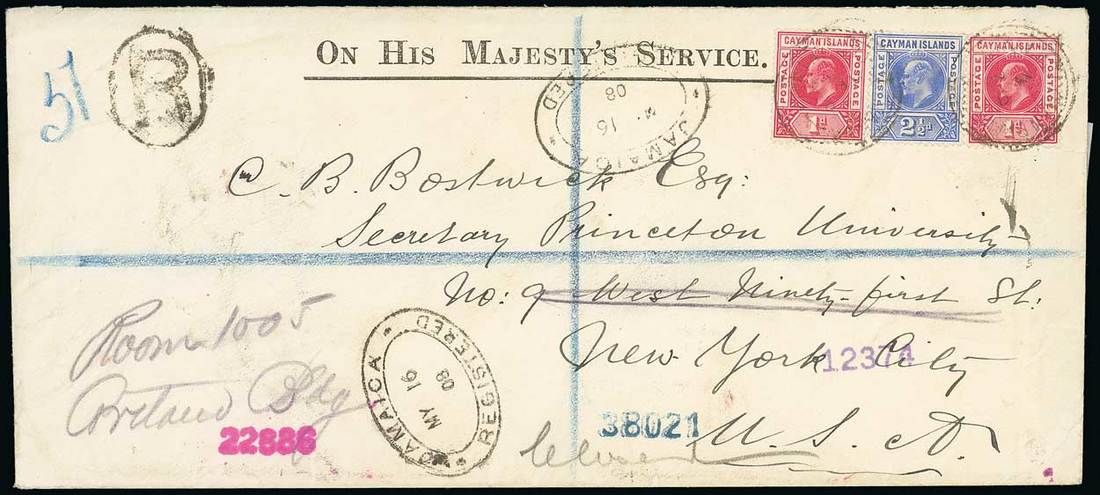 51
R
ON HIS MAJESTY'S SERVICE.
CAYMAN ISLANDS
POSTAGE POSTAGE
1d
CAYMAN ISLANDS
POSTAGE POSTAGE
2½d
CAYMAN ISLANDS
POSTAGE POSTAGE
1d
JAMAICA
REGISTERED
MY 16
08
C. B. Bostwick Esq:
Secretary Princeton University
No: 9 West Ninety-first St:
New York City
12374
U. S. A.
Room 1005
Bldg
22886
JAMAICA
REGISTERED
MY 16
08
38021